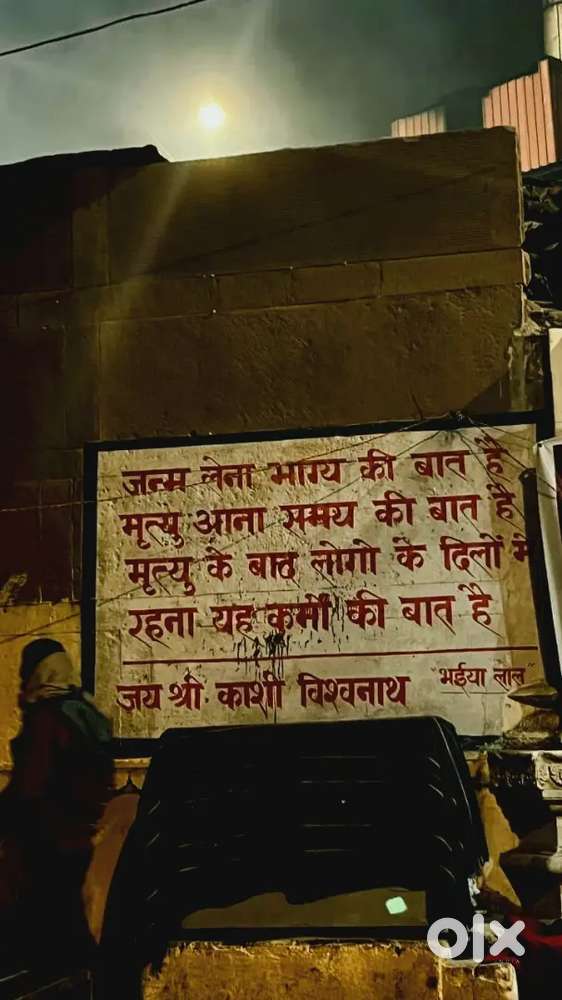 जन्म लेना भाग्य की बात है
मृत्यु आना समय की बात है
मृत्यु के बाद लोगो के दिलों में
रहना यह कर्मो की बात है
जय श्री काशी विश्वनाथ
"भईया लाल"
olx